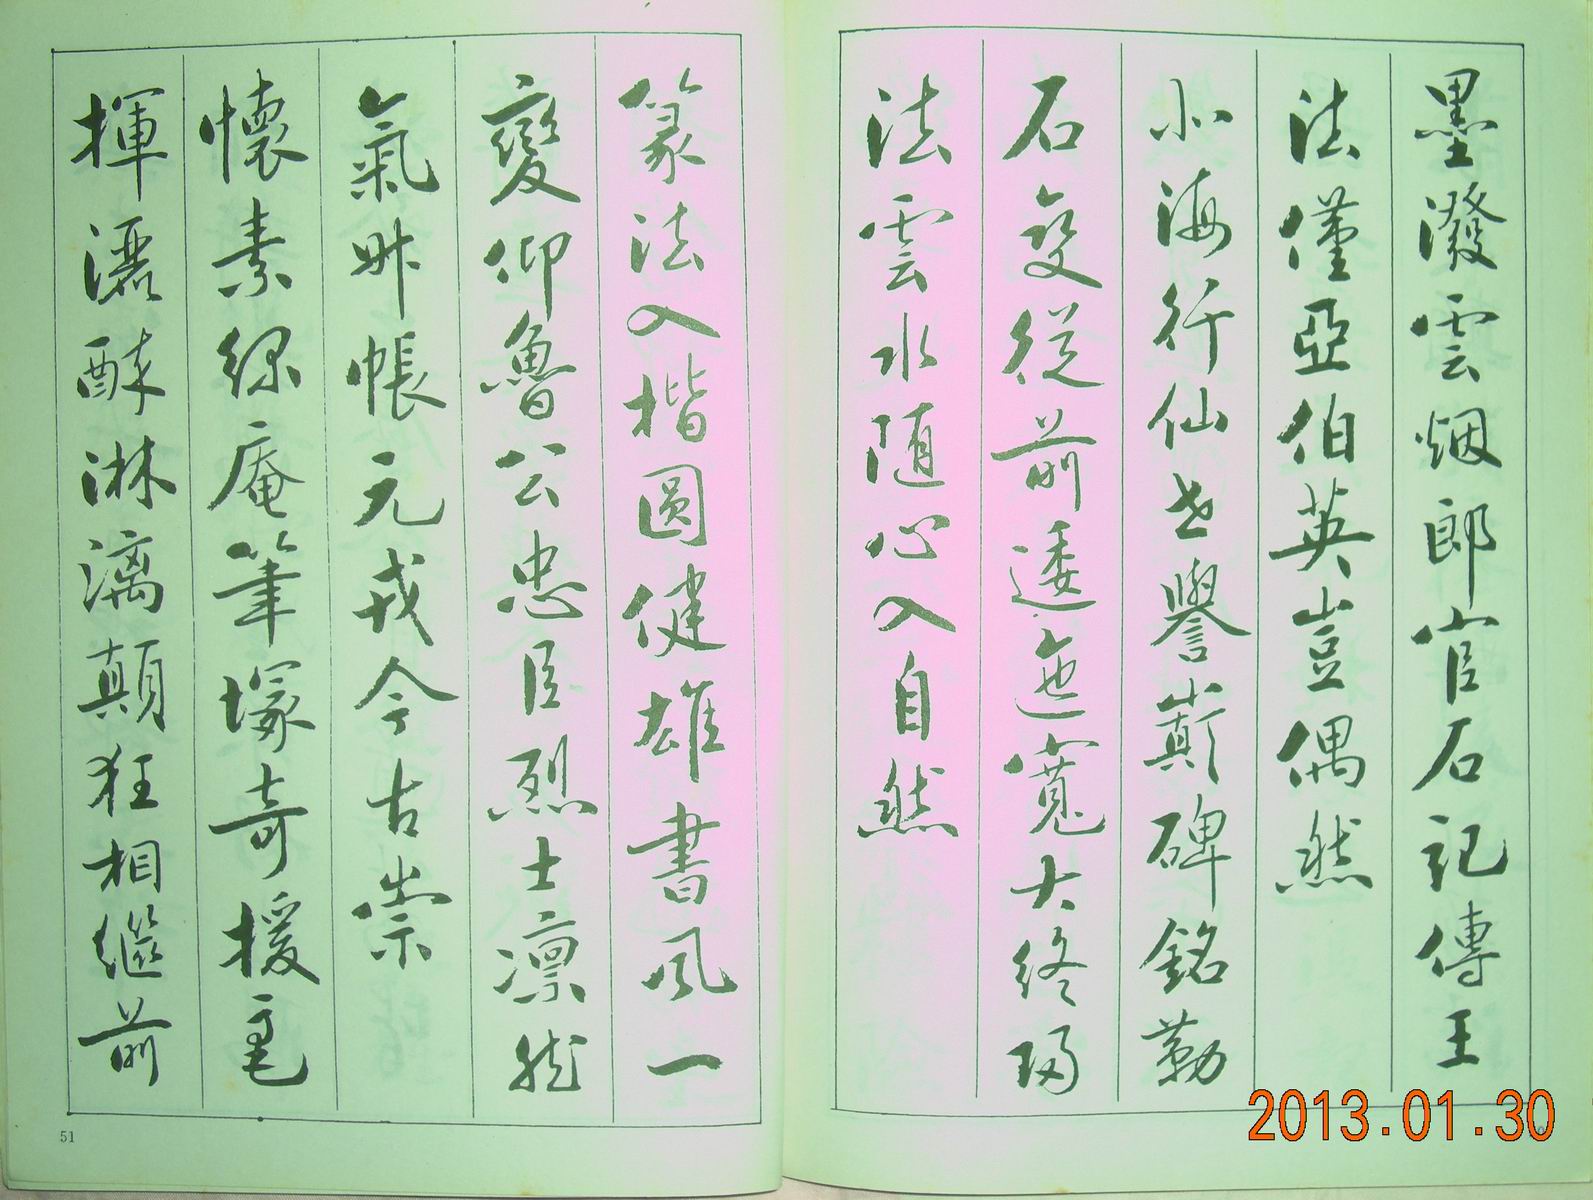 墨潑雲烟郎官石記傳王
法僅亞伯英豈偶然
北海行仙世譽巔碑銘勒
石從前逶迤寬大終歸
法雲水随心入自然
篆法入楷圓健雄書風一
變仰魯公忠臣烈士凛然
氣升帳元戎今古崇
懷素綠庵筆塚奇援毫
揮灑醉淋漓顛狂相繼前
51
2013.01.30